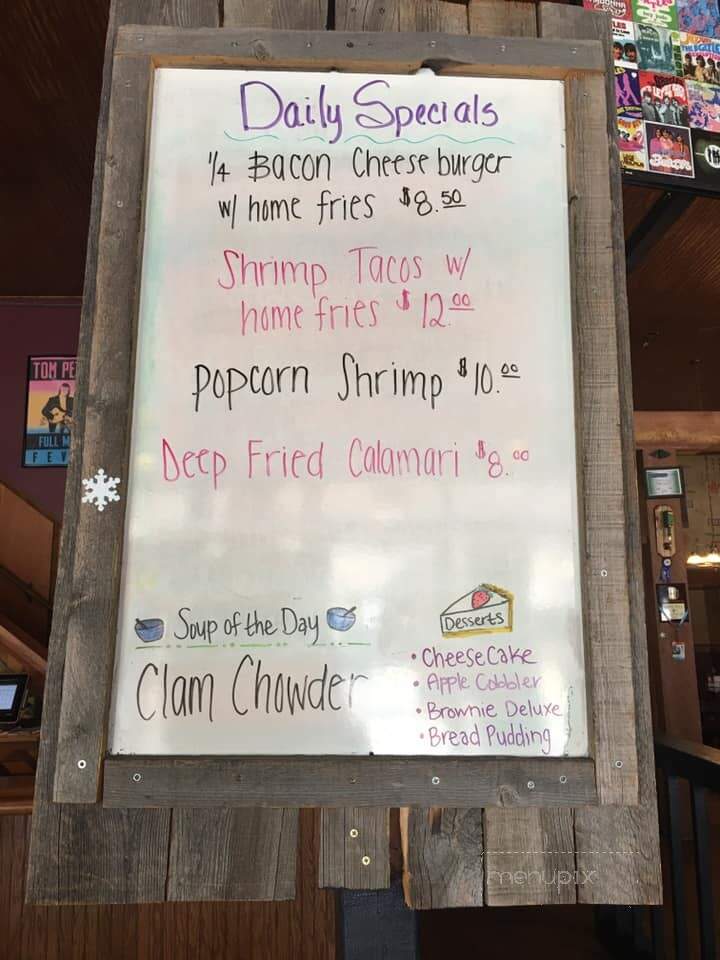 Daily Specials
1/4 Bacon Cheese burger
w/ home fries $8.50
Shrimp Tacos w/
home fries $12.00
Popcorn Shrimp $10.00
Deep Fried Calamari $8.00
Soup of the Day
Clam Chowder
Desserts
• Cheese Cake
• Apple Cobbler
• Brownie Deluxe
• Bread Pudding
TOM PE
FULL M
FEV
menupix